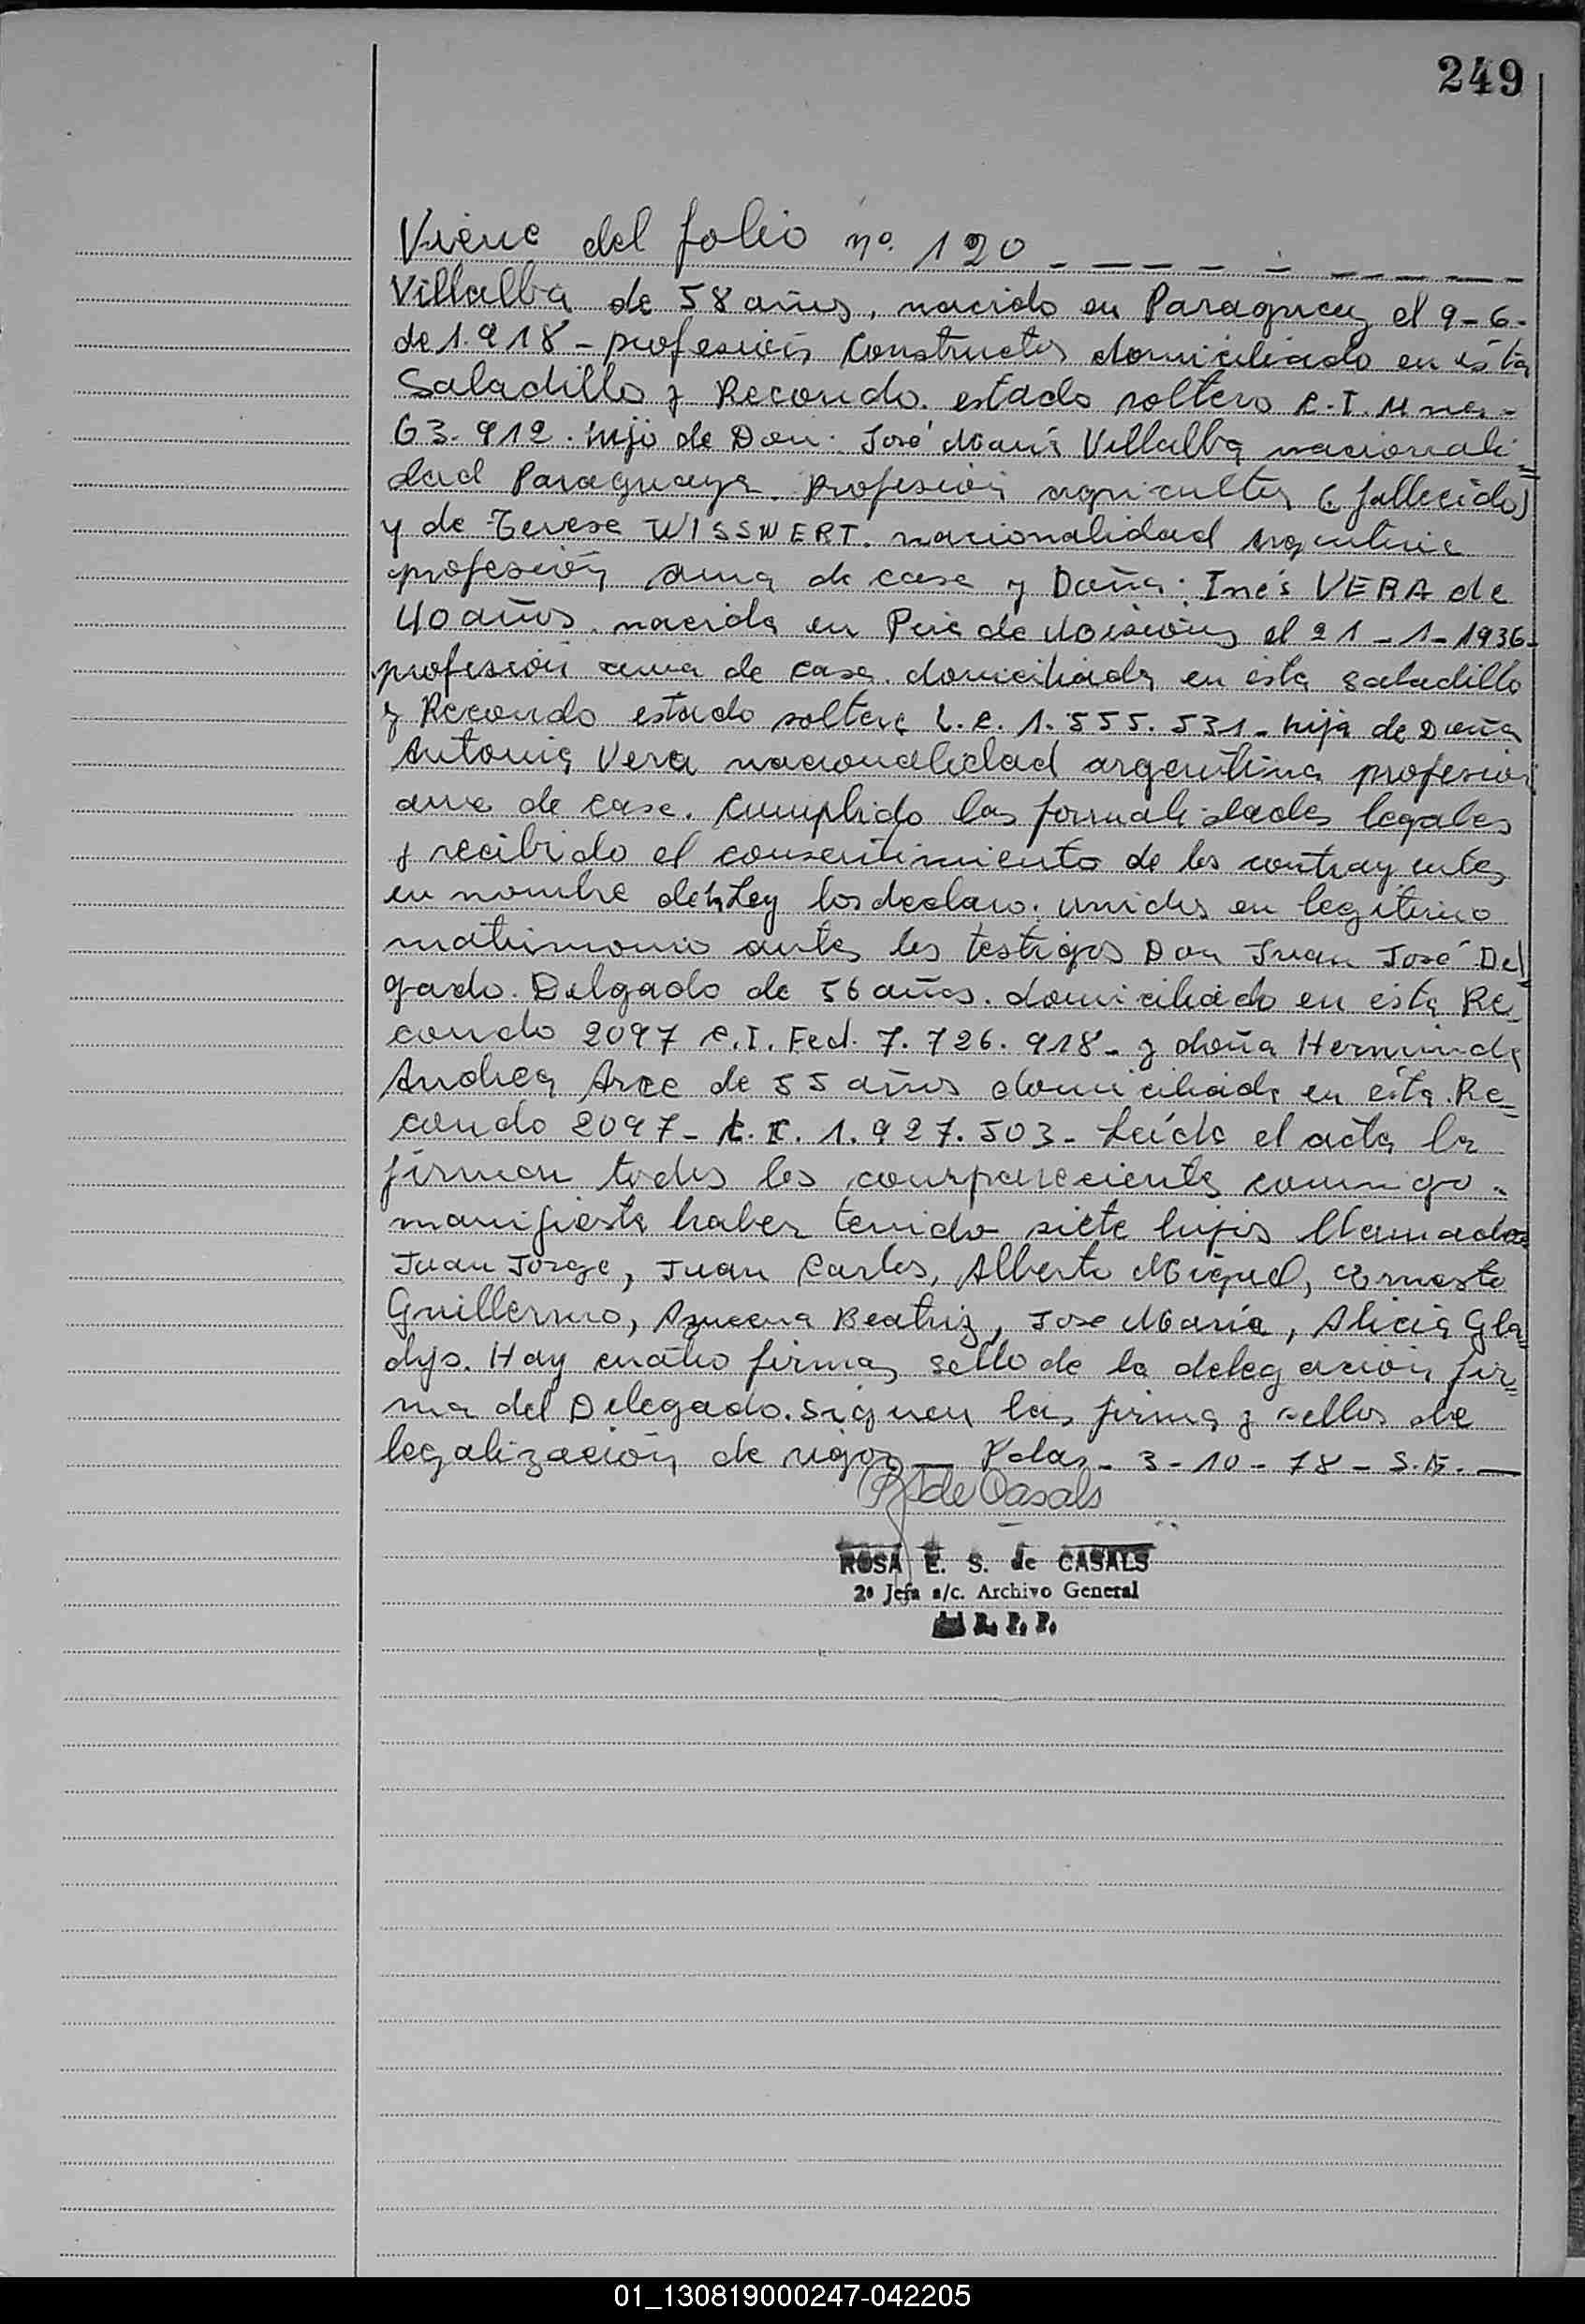 249
Viene del folio nº 120 - - - - - - - - - -
Villalba de 58 años, nacido en Paraguay el 9-6-
de 1.918 - profesión Constructor domiciliado en ésta
Saladillo y Recondo. estado soltero C.I. Mnes.-
63.912. hijo de Don: José María Villalba nacionali-
dad Paraguaya. profesión agricultor (fallecido)
y de Teresa WISSNERT. nacionalidad Argentina
profesión ama de casa y Doña: Inés VERA de
40 años. nacida en Pcia de Misiones el 21-1-1936-
profesión ama de casa. domiciliada en ésta Saladillo
y Recondo estado soltera L.C. 1.555.531 - hija de Doña
Antonia Vera nacionalidad argentina profesión
ama de casa. Cumplido las formalidades legales
y recibido el consentimiento de los contrayentes
en nombre de la Ley los declaro. unidos en legítimo
matrimonio ante los testigos Don Juan José Del
gado. Delgado de 56 años. domiciliado en ésta Re_
condo 2097 C.I. Fed. 7.726.918 - y doña Herminda
Andrea Arce de 55 años domiciliada en ésta. Re_
condo 2097 - 1.927.503 - Leída el acta la
firman todos los comparecientes conmigo.
manifiesta haber tenido siete hijos llamados
Juan Jorge, Juan Carlos, Alberto Miguel, Ernesto
Guillermo, Azucena Beatriz, Jose María, Alicia Gla
dys. Hay cuatro firmas sello de la delegación fir_
ma del Delegado. siguen las firmas y sellos de
legalización de rigor — Pdas - 3-10-78 -
R S de Casals
ROSA E. S. de CASALS
2ª Jefa a/c. Archivo General
R. P. P.
01_130819000247-042205